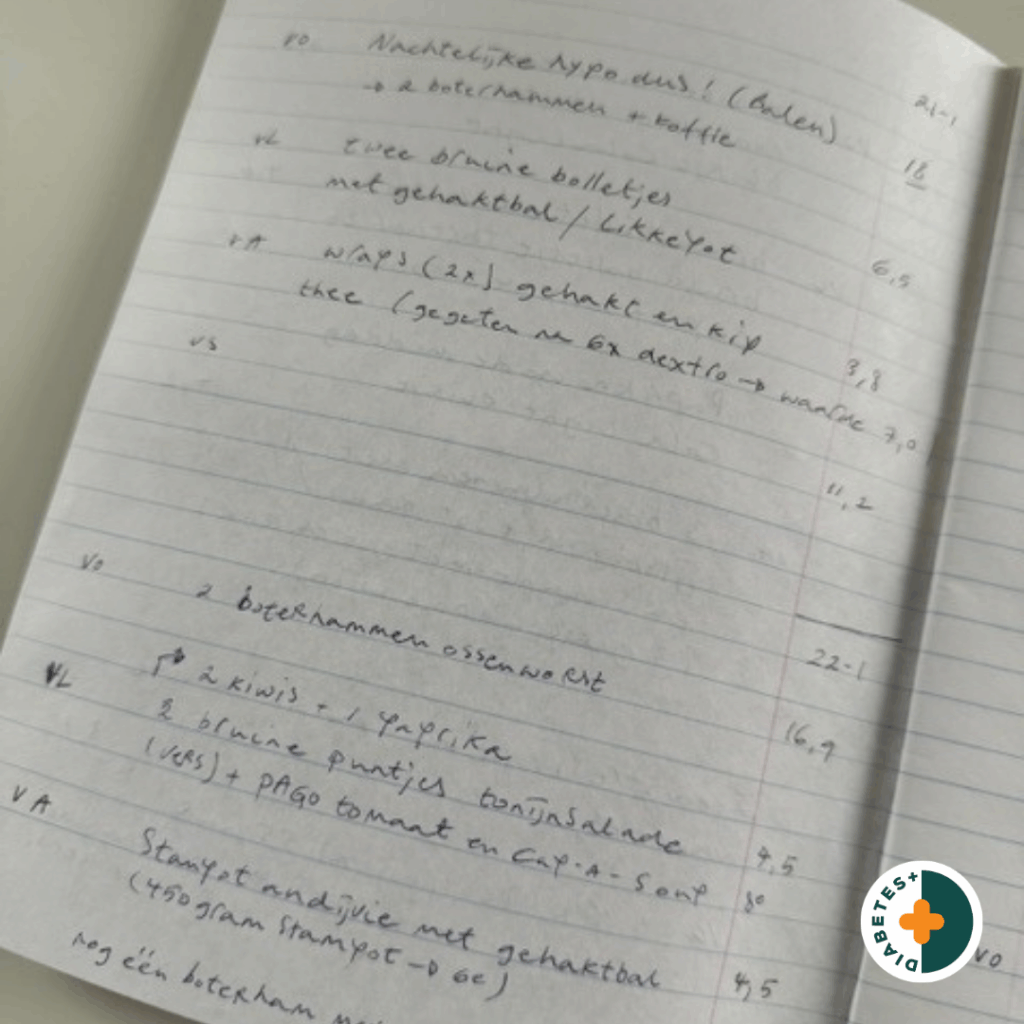 21-1
vo Nachtelijke hypo dus! (Balen) 18
→ 2 boterhammen + koffie
vL twee bruine bolletjes 6,5
met gehaktbal / Likkepot
vA wraps (2x) gehakt en kip 3,8
thee (gegeten na 6x dextro → waarde 7,0
vs 11,2
22-1
vo 2 boterhammen ossenworst 16,9
2 kiwis + 1 paprika
VL 2 bruine puntjes tonijnsalade
(vers) + PAGO tomaat en Cup-A-Soup
VA Stampot andijvie met gehaktbal 4,5
(450 gram stampot → 6e)
nog één boterham
DIABETES+
vo